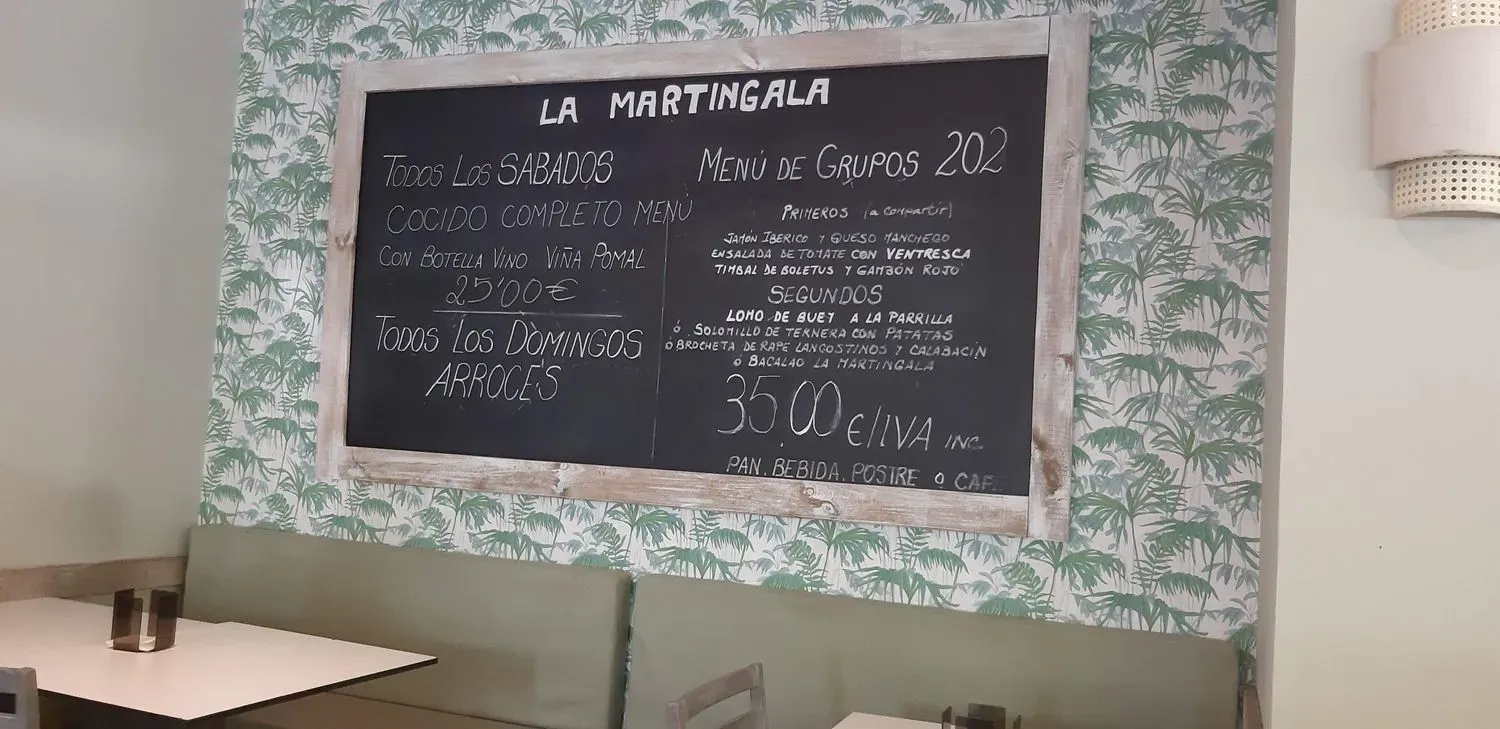 LA MARTINGALA
TODOS LOS SABADOS
COCIDO COMPLETO MENÚ
CON BOTELLA VINO VIÑA POMAL
25'00€
TODOS LOS DOMINGOS
ARROCES
MENÚ DE GRUPOS 202
PRIMEROS (a compartir)
JAMÓN IBERICO Y QUESO MANCHEGO
ENSALADA DE TOMATE CON VENTRESCA
TIMBAL DE BOLETUS Y GAMBÓN ROJO
SEGUNDOS
LOMO DE BUEY A LA PARRILLA
ó SOLOMILLO DE TERNERA CON PATATAS
ó BROCHETA DE RAPE LANGOSTINOS Y CALABACÍN
ó BACALAO LA MARTINGALA
35,00 €/IVA INC
PAN. BEBIDA. POSTRE O CAF.